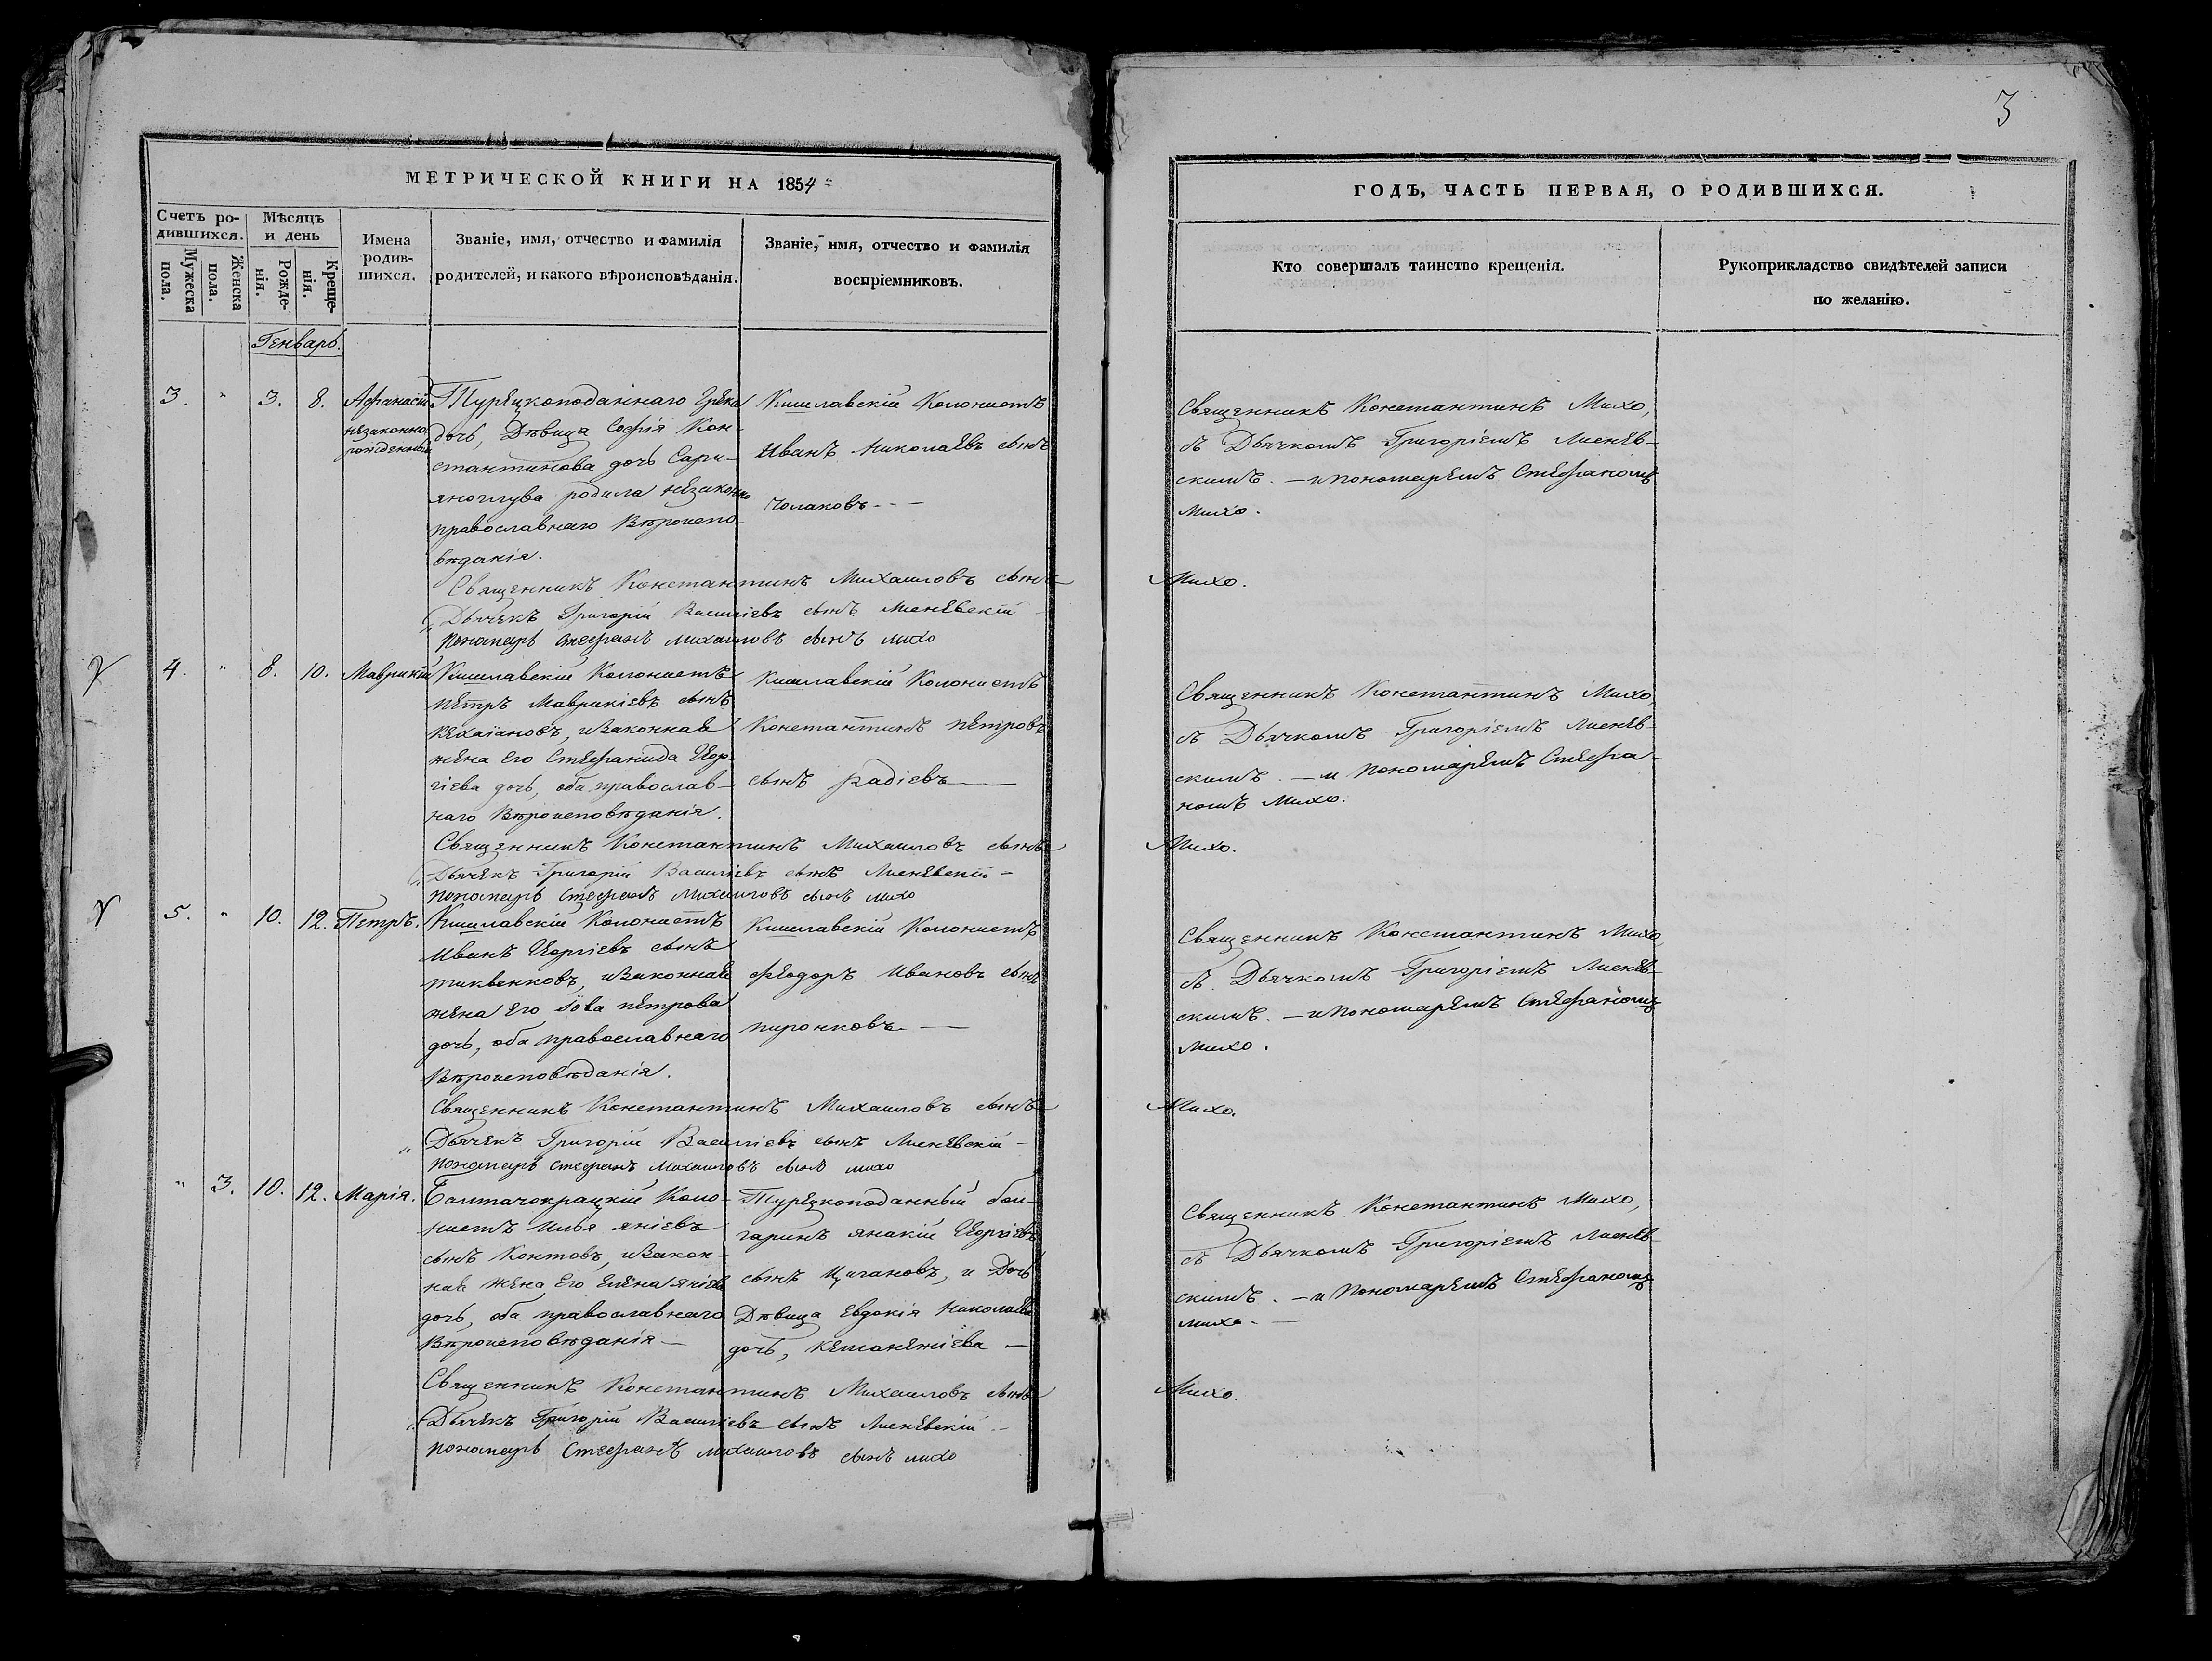 3
МЕТРИЧЕСКОЙ КНИГИ НА 1854
ГОДЪ, ЧАСТЬ ПЕРВАЯ, О РОДИВШИХСЯ.
Счетъ ро-
дившихся.
Мужеска
пола.
Женска
пола.
Мѣсяцъ
и день
Рожде-
нія.
Креще-
нія.
Имена
родив-
шихся.
Званіе, имя, отчество и фамилія
родителей, и какого вѣроисповѣданія.
Званіе, имя, отчество и фамилія
воспріемниковъ.
Кто совершалъ таинство крещенія.
Рукоприкладство свидѣтелей записи
по желанію.
Генварь.
3. " 3. 8. Афанасій
незаконно
рожденный
Турецкоподаннаго Грека
дочь, Дѣвица Софія Кон-
стантинова дочь Сари-
яноглува родила незаконно
православнаго Вѣроиспо-
вѣданія.
Кишлавскій Колонистъ
Иванъ Николаевъ сынъ
Чолаковъ
Священникъ Константинъ Михо,
съ Дьячкомъ Григоріемъ Лиснев-
скимъ. — и Пономаремъ Стефаномъ
Михо.
Священникъ Константинъ Михаиловъ сынъ Михо.
Дьячекъ Григорій Василіевъ сынъ Лисневскій
Пономарь Стефанъ Михаиловъ сынъ Михо
4. " 8. 10. Маврикій
Кишлавскій Колонистъ
Петръ Маврикіевъ сынъ
Кехаіановъ, и Законная
жена Его Стефанида Геор-
гіева дочь, оба православ-
наго Вѣроисповѣданія.
Кишлавскій Колонистъ
Константинъ Петровъ
сынъ Радіевъ
Священникъ Константинъ Михо,
съ Дьячкомъ Григоріемъ Лиснев-
скимъ. — и Пономаремъ Стефа-
номъ Михо.
Священникъ Константинъ Михаиловъ сынъ Михо.
Дьячекъ Григорій Василіевъ сынъ Лисневскій
Пономарь Стефанъ Михаиловъ сынъ Михо
5. " 10. 12. Петръ.
Кишлавскій Колонистъ
Иванъ Георгіевъ сынъ
Тиквенковъ, и Законная
жена Его Петрова
дочь, оба православнаго
Вѣроисповѣданія.
Кишлавскій Колонистъ
Феодоръ Ивановъ сынъ
Пиронковъ
Священникъ Константинъ Михо,
съ Дьячкомъ Григоріемъ Лиснев-
скимъ. — и Пономаремъ Стефаномъ
Михо.
Священникъ Константинъ Михаиловъ сынъ Михо.
Дьячекъ Григорій Василіевъ сынъ Лисневскій
Пономарь Стефанъ Михаиловъ сынъ Михо
" 3. 10. 12. Марія.
Балтачокрацкій Коло-
нистъ Илья Яніевъ
сынъ Контовъ, и Закон-
ная жена Его Елена Яніева
дочь, оба православнаго
Вѣроисповѣданія
Турецкоподанный бол-
гаринъ Янакій Георгіевъ
сынъ Цигановъ, и Дочь
Дѣвица Евдокія Николаева
дочь,
Священникъ Константинъ Михо,
съ Дьячкомъ Григоріемъ Лиснев-
скимъ. — и Пономаремъ Стефаномъ
Михо.
Священникъ Константинъ Михаиловъ сынъ Михо.
Дьячекъ Григорій Василіевъ сынъ Лисневскій
Пономарь Стефанъ Михаиловъ сынъ Михо